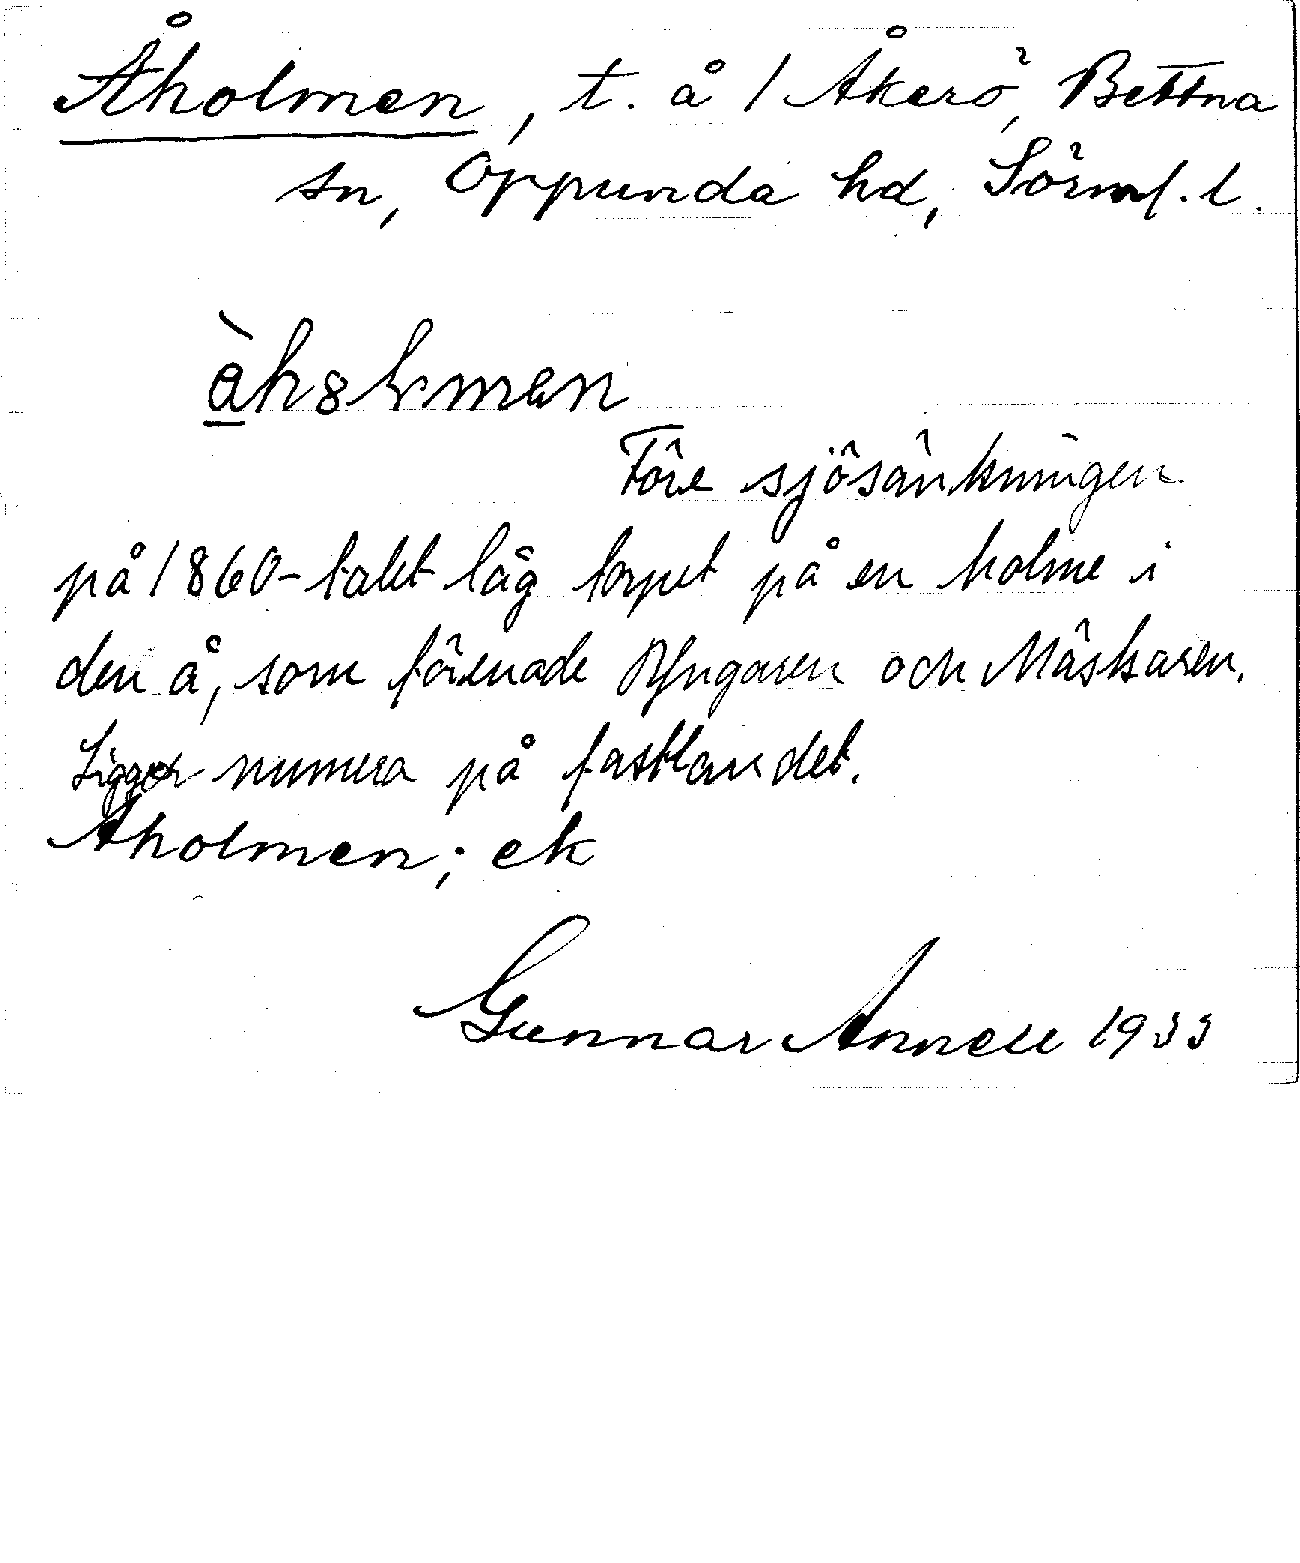 Åholmen, t. å / Åkerö, Bettna
sn, Oppunda hd, Sörml. l.
Före sjösänkningen
på 1860-talet låg torpet på en holme i
den å, som förenade Yngaren och Måskaren.
Ligger numera på fastlandet.
Åholmen; ek
Gunnar Annell 1933